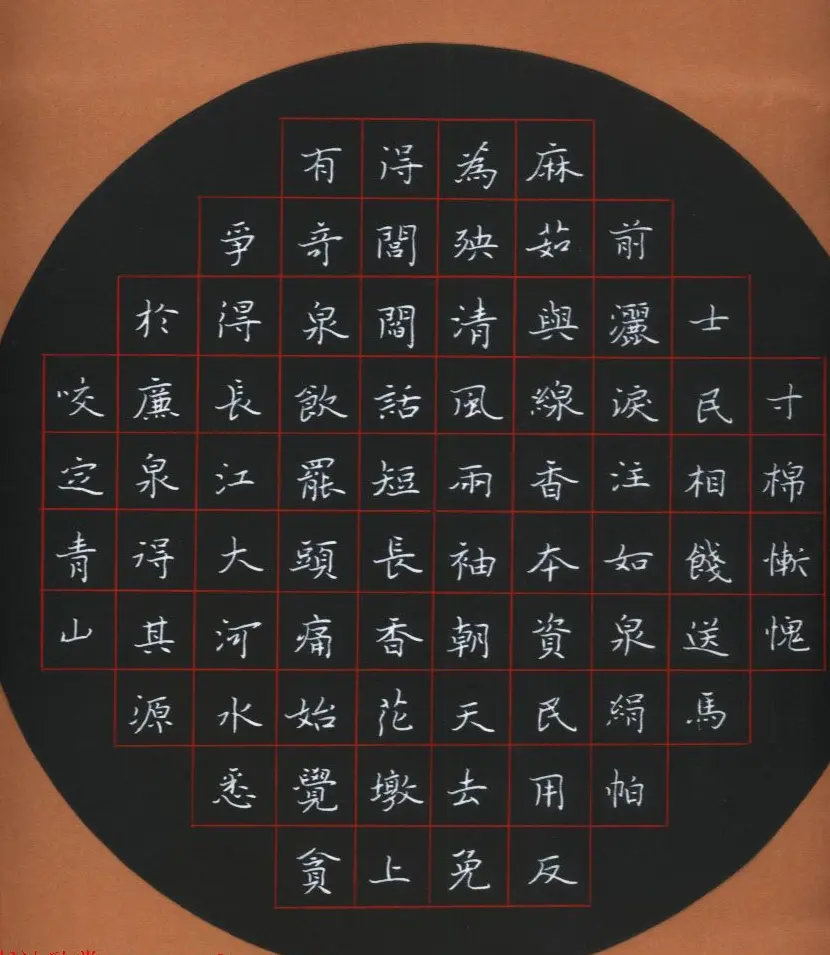 寸棉慚愧
士民相餞送馬
前灑淚注如泉絹帕
麻茹與線香本資民用反
為殃清風兩袖朝天去免
得閭閻話短長香花墩上
有奇泉飲罷頭痛始覺貪
爭得長江大河水悉
於廉泉得其源
咬定青山